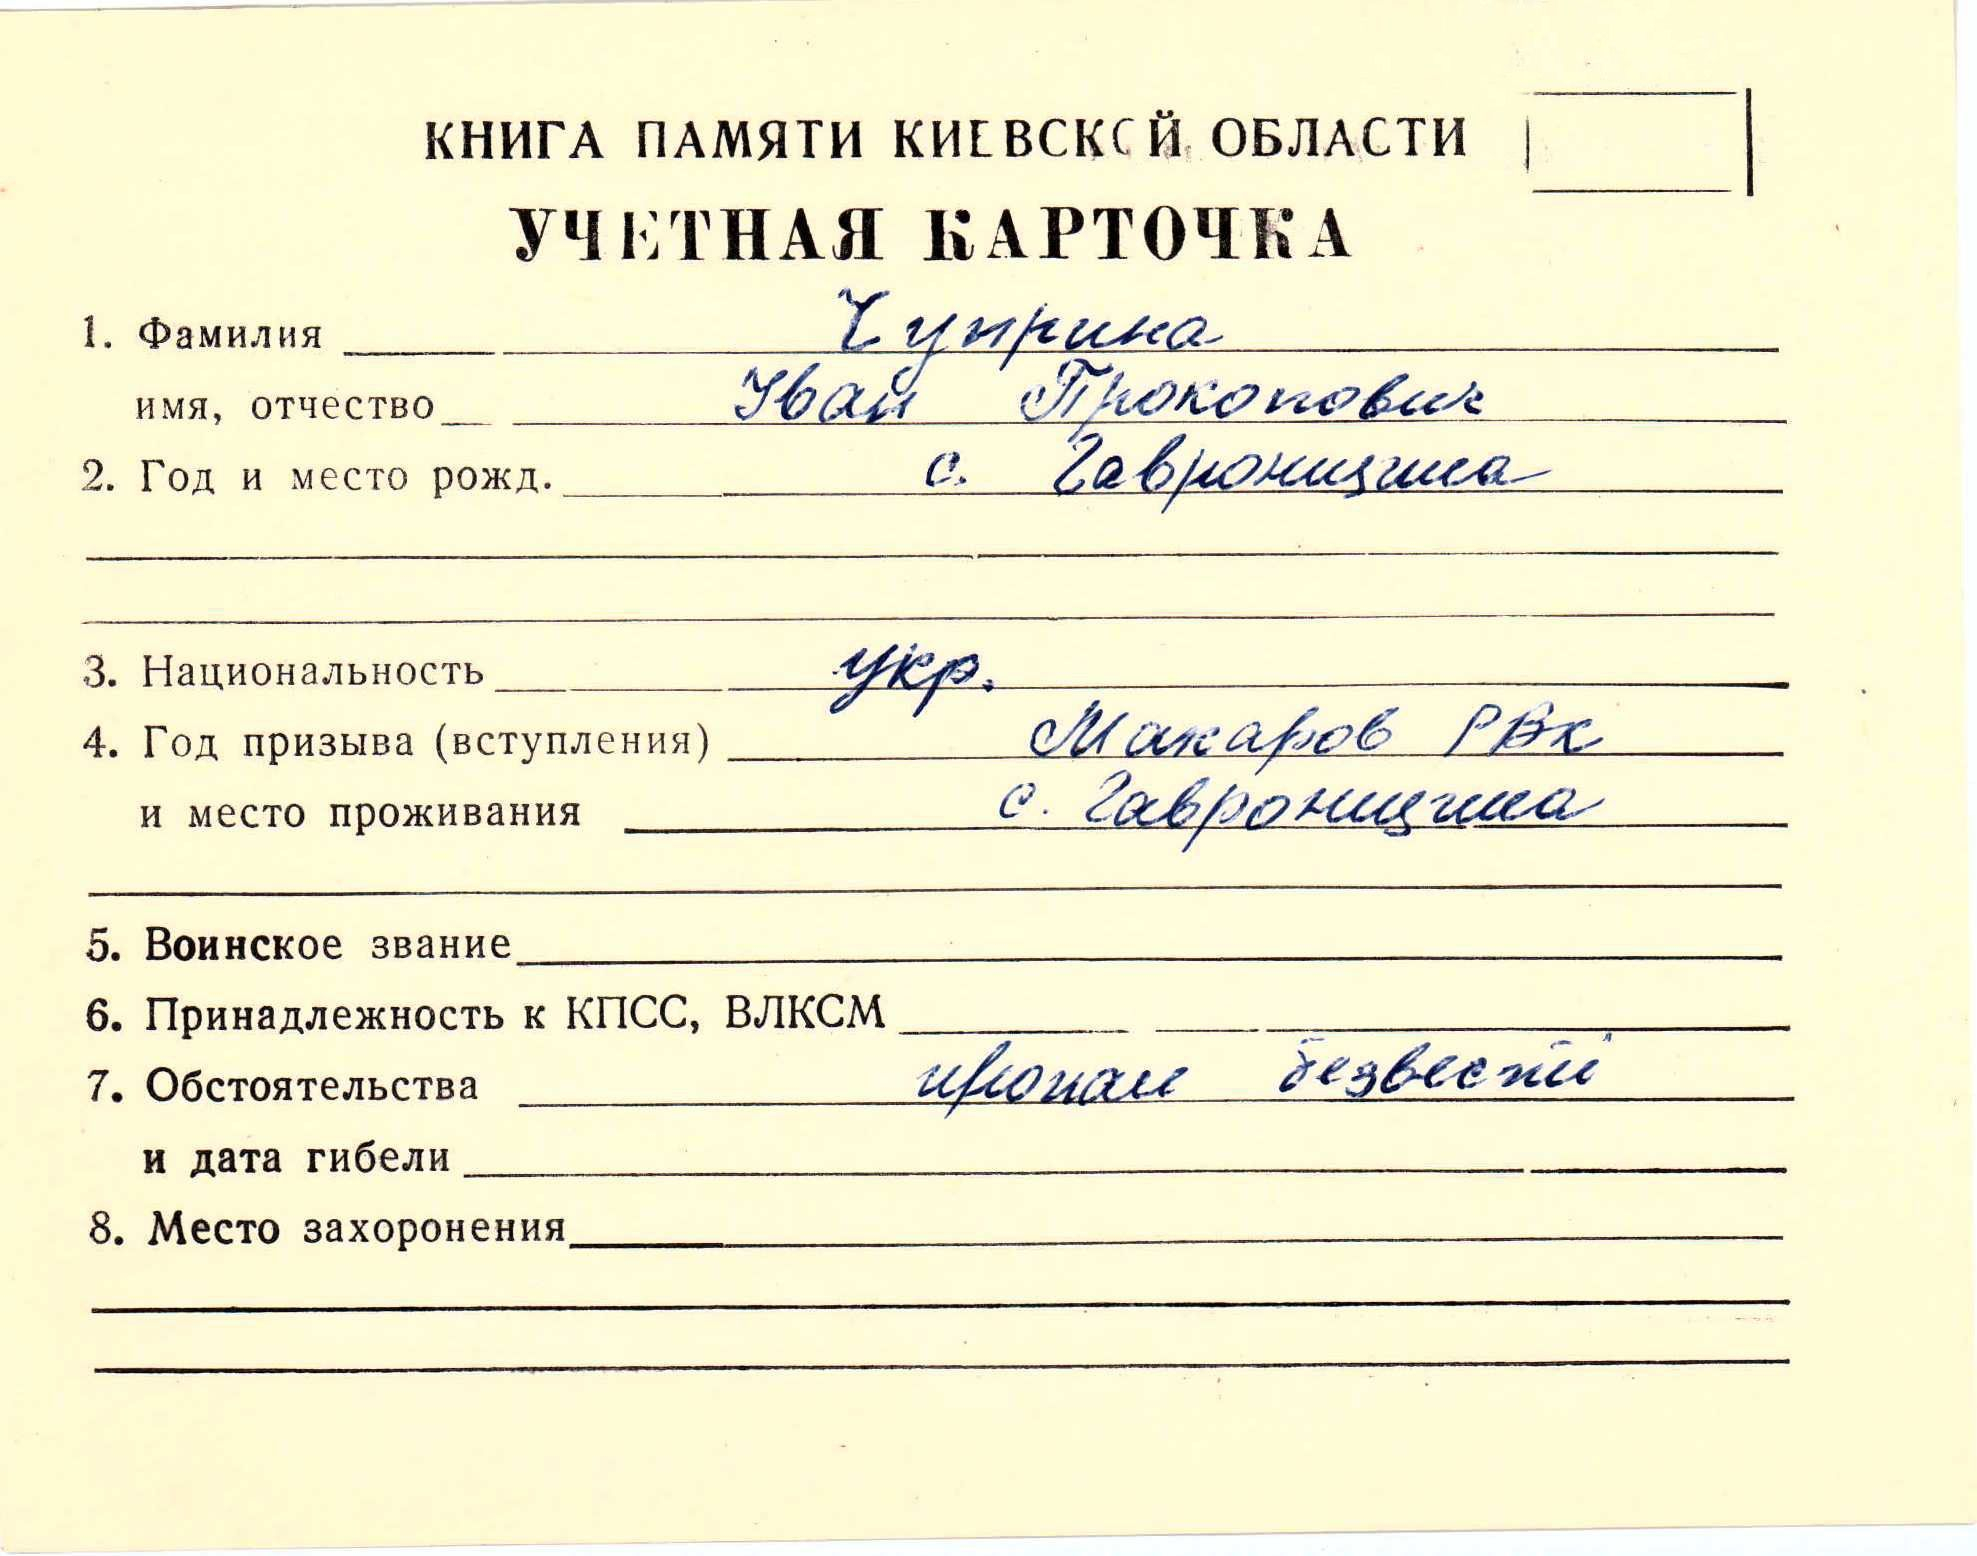 КНИГА ПАМЯТИ КИЕВСКОЙ ОБЛАСТИ
УЧЕТНАЯ КАРТОЧКА
1. Фамилия Чуприна
имя, отчество Іван Прокопович
2. Год и место рожд. с. Гавронщина
3. Национальность укр.
4. Год призыва (вступления) Макаров РВк
и место проживания с. Гавронщина
5. Воинское звание
6. Принадлежность к КПСС, ВЛКСМ
7. Обстоятельства пропал безвести
и дата гибели
8. Место захоронения